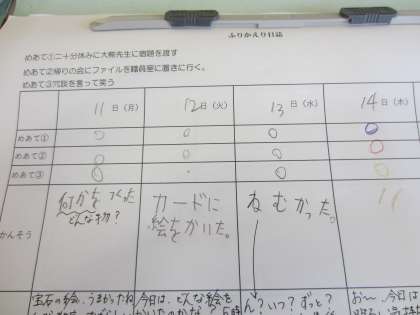 ふりかえり日誌
めあて①二十分休みに大熊先生に宿題を渡す
めあて②帰りの会にファイルを職員室に置きに行く。
めあて③冗談を言って笑う
11日（月） 12日（火） 13日（水） 14日（木）
めあて① ○ ○ ○ ○
めあて② ○ ○ ○ ○
めあて③ ○ ・ ○
かんそう
何かをつくった
どんな物？
カードに
絵をかいた。
ねむかった。
宝石の絵、うまかったね
今日は、どんな絵を
ん？いつ？ずっと？
お〜、今日は